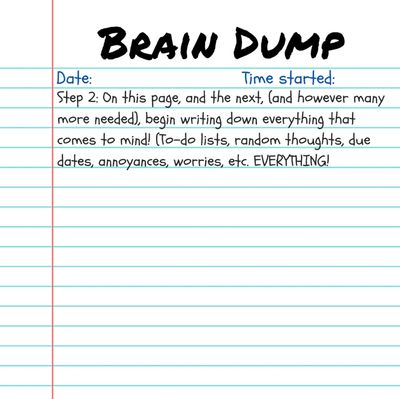 BRAIN DUMP
Date: Time started:
Step 2: On this page, and the next, (and however many
more needed), begin writing down everything that
comes to mind! (To-do lists, random thoughts, due
dates, annoyances, worries, etc. EVERYTHING!